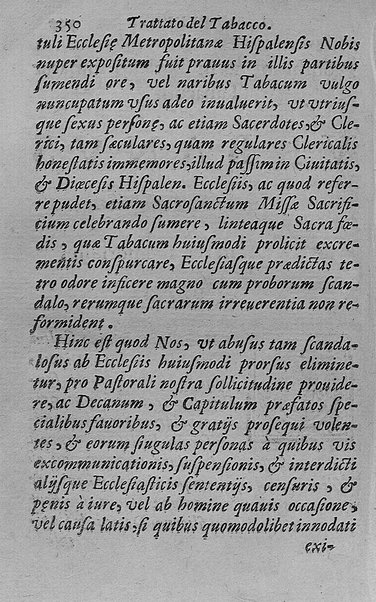 350 Trattato del Tabacco.
tuli Ecclesię Metropolitanæ Hispalensis Nobis
nuper expositum fuit prauus in illis partibus
sumendi ore, vel naribus Tabacum vulgo
nuncupatum vsus adeo inualuerit, vt vtrius-
que sexus personę, ac etiam Sacerdotes, & Cle-
rici, tam sæculares, quam regulares Clericalis
honestatis immemores, illud passim in Ciuitatis,
& Diœcesis Hispalen. Ecclesiis, ac quod refer-
re pudet, etiam Sacrosanctum Missæ Sacrifi-
cium celebrando sumere, linteaque Sacra fœ-
dis, quæ Tabacum huiusmodi prolicit excre-
mentis conspurcare, Ecclesiasque prædictas te-
tro odore inficere magno cum proborum scan-
dalo, rerumque sacrarum irreuerentia non re-
formident.
Hinc est quod Nos, vt abusus tam scanda-
losus ab Ecclesiis huiusmodi prorsus elimine-
tur, pro Pastorali nostra sollicitudine prouide-
re, ac Decanum, & Capitulum præfatos spe-
cialibus fauoribus, & gratijs prosequi volen-
tes, & eorum siugulas personas à quibus vis
excommunicationis, suspensionis, & interdicti
alijsque Ecclesiasticis sententijs, censuris, &
pęnis à iure, vel ab homine quauis occasione,
vel causa latis, si quibus quomodolibet innodati
exi-